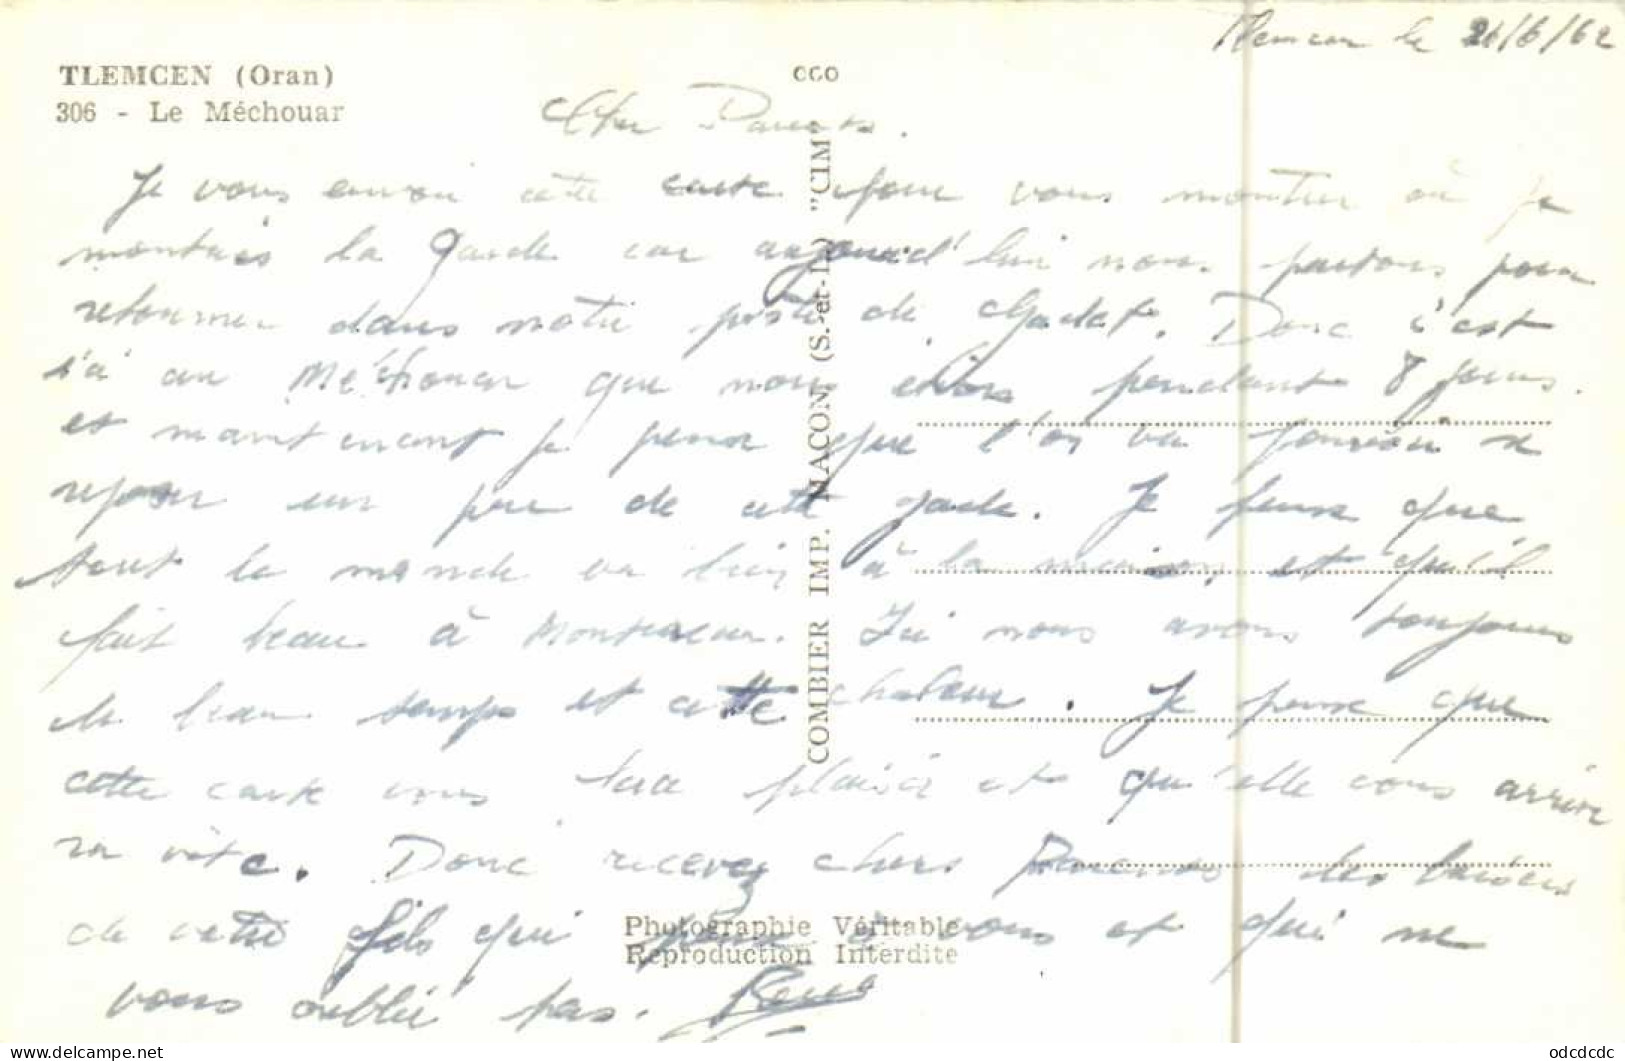 Tlemcen le 21/6/62
TLEMCEN (Oran)
306 - Le Méchouar
Cher Parents.
Je vous envoi cette carte pour vous montrer où je
montais la garde car aujourd'hui nous partons pour
retourner dans notre poste de . Donc c'est
au Méchouar que nous étions pendant 8 jours.
et maintenant je pense que l'on va pouvoir se
reposer un peu de cette garde. Je pense que
tout le monde va bien à la maison, et qu'il
fait beau à . Ici nous avons toujours
du beau temps et cette chaleur. Je pense que
cette carte vous fera plaisir et qu'elle vous arrive
vite. Donc recevez chers Parents des baisers
de votre fils qui pense à vous et qui ne
vous oublie pas.
COMBIER IMP. MACON (S.-et-L.) "CIM"
Photographie Véritable
Reproduction Interdite
delcampe.net
odcdcdc